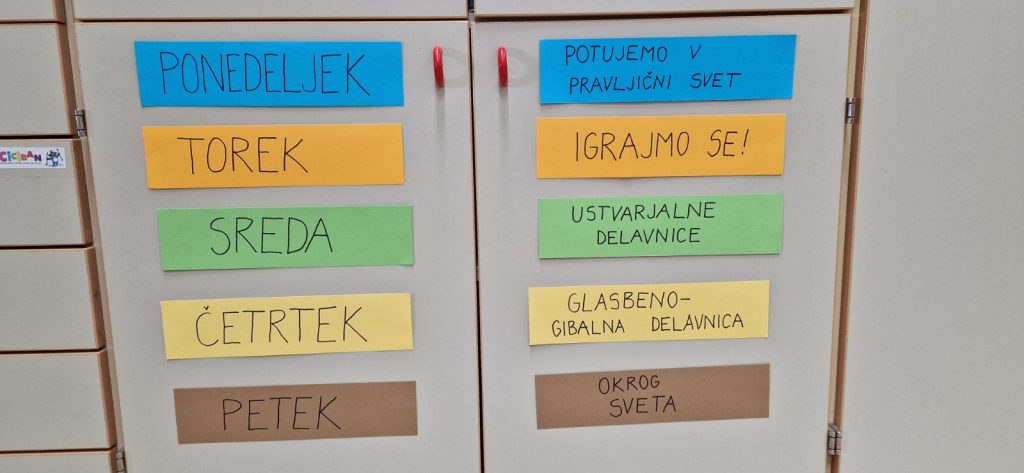 PONEDELJEK
POTUJEMO V
PRAVLJIČNI SVET
TOREK
IGRAJMO SE!
SREDA
USTVARJALNE
DELAVNICE
ČETRTEK
GLASBENO-
GIBALNA DELAVNICA
PETEK
OKROG
SVETA
CICIBAN